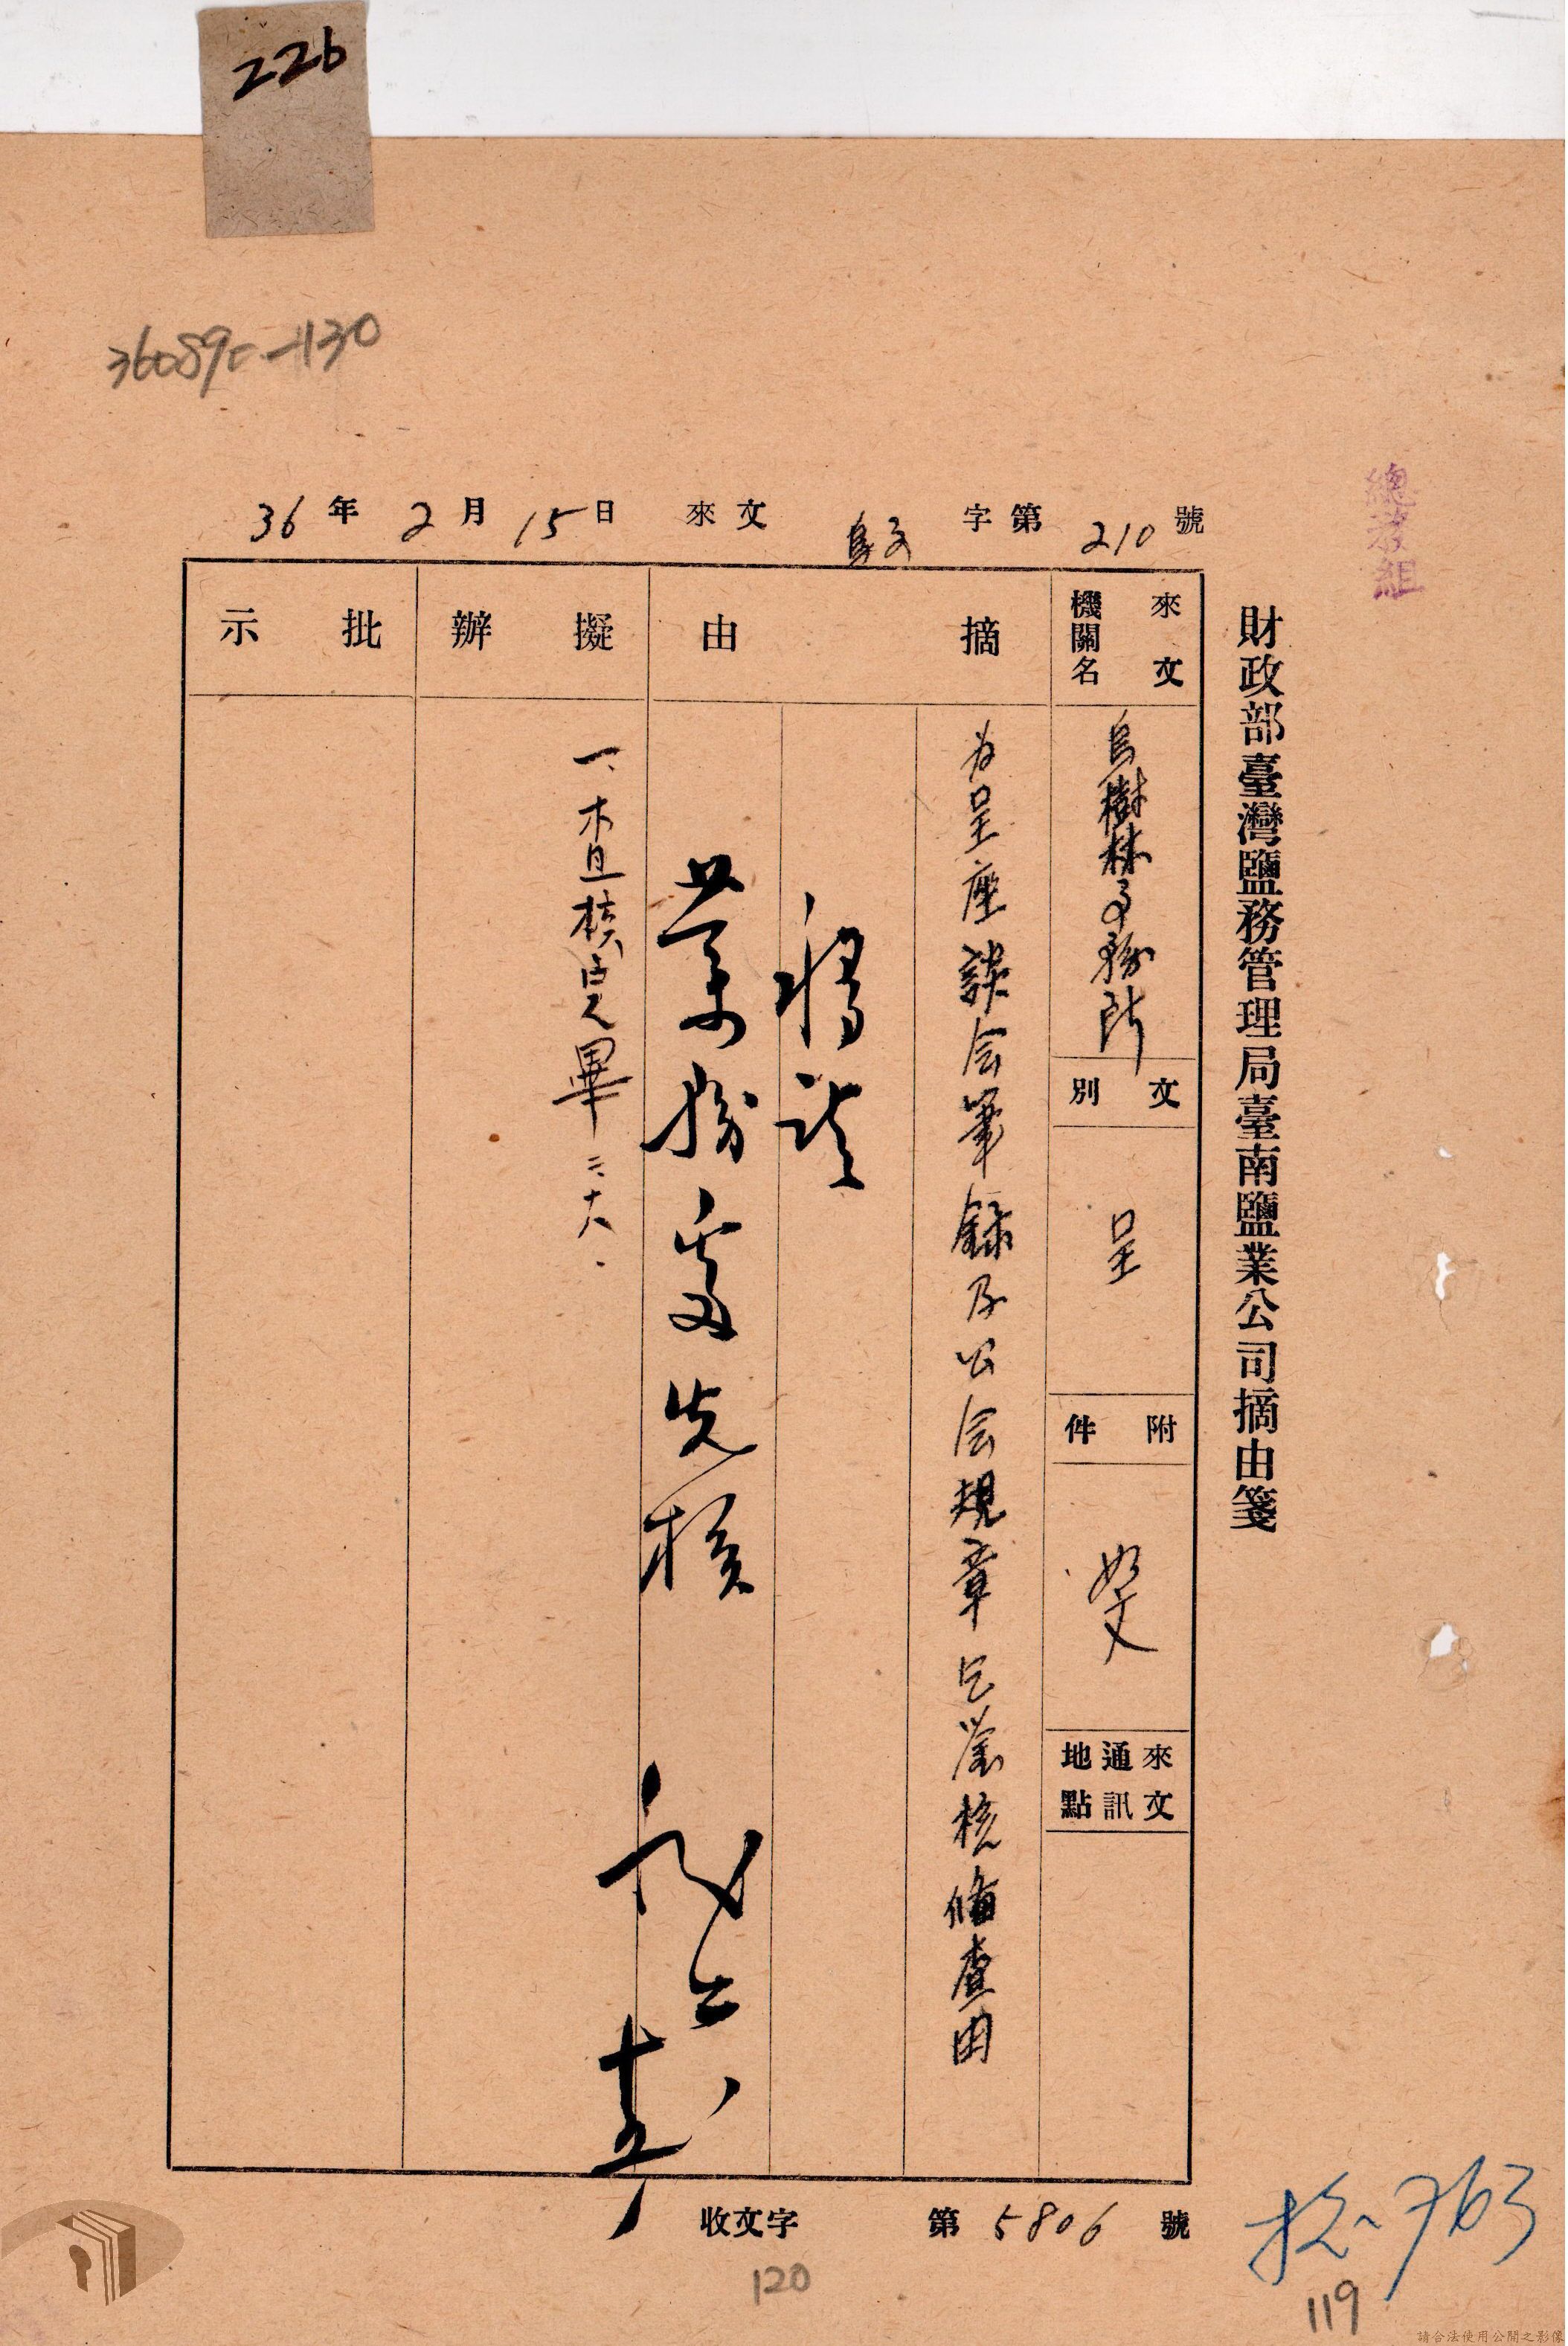 226
總務組
財政部臺灣鹽務管理局臺南鹽業公司摘由箋
36年2月15日 來文 烏文 字第210號
來文機關名
烏樹林事務所
文別
呈
附件
如文
來文通訊地點
摘由
為呈座談会筆錄及公会規章乞鑒核備查由
業務處先核
擬辦
一、查核完畢 三、十八、
批示
收文字 第5806號
120
119
請合法使用公開之影像